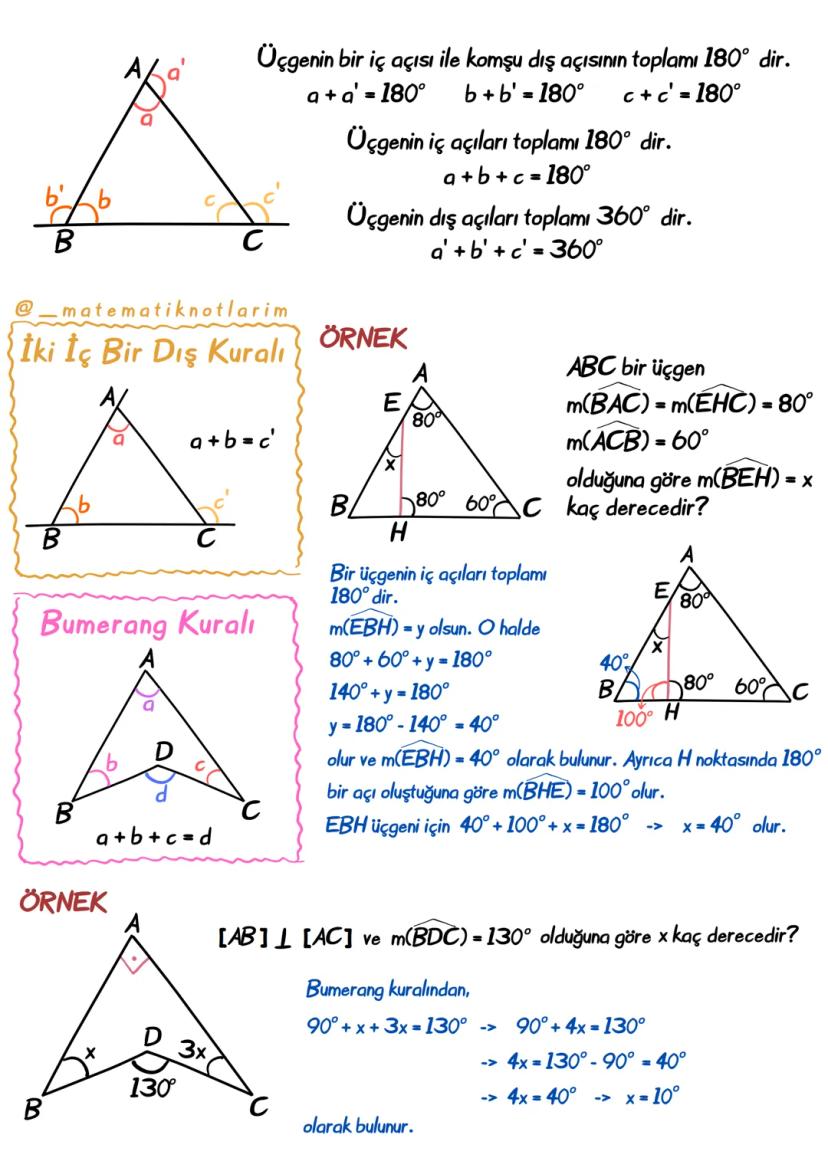 Üçgenin bir iç açısı ile komşu dış açısının toplamı 180° dir.
a + a' = 180° b + b' = 180° c + c' = 180°
Üçgenin iç açıları toplamı 180° dir.
a + b + c = 180°
Üçgenin dış açıları toplamı 360° dir.
a' + b' + c' = 360°
A
a'
a
b'
b
c
c'
B
C
@_matematiknotlarim
İki İç Bir Dış Kuralı
A
a
a + b = c'
b
c'
B
C
ÖRNEK
A
E
80°
x
B
80°
60°
C
H
ABC bir üçgen
m(BAC) = m(EHC) = 80°
m(ACB) = 60°
olduğuna göre m(BEH) = x
kaç derecedir?
Bir üçgenin iç açıları toplamı
180° dir.
m(EBH) = y olsun. O halde
80° + 60° + y = 180°
140° + y = 180°
y = 180° - 140° = 40°
olur ve m(EBH) = 40° olarak bulunur. Ayrıca H noktasında 180°
bir açı oluştuğuna göre m(BHE) = 100° olur.
EBH üçgeni için 40° + 100° + x = 180° -> x = 40° olur.
A
E
80°
x
40°
B
80°
60°
C
100°
H
Bumerang Kuralı
A
a
D
b
c
d
B
C
a + b + c = d
ÖRNEK
A
[AB] ⊥ [AC] ve m(BDC) = 130° olduğuna göre x kaç derecedir?
D
x
3x
130°
B
C
Bumerang kuralından,
90° + x + 3x = 130° -> 90° + 4x = 130°
-> 4x = 130° - 90° = 40°
-> 4x = 40° -> x = 10°
olarak bulunur.